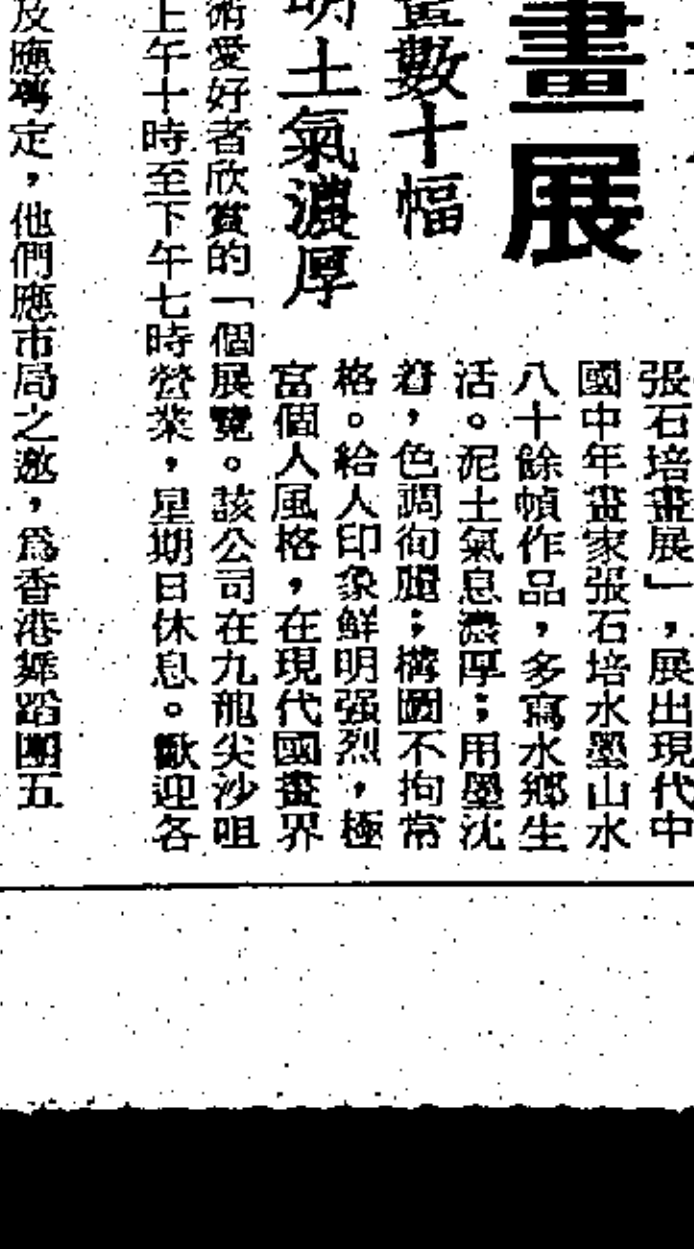 畫展
畫數十幅
明土氣濃厚
張石培畫展」，展出現代中
國中年畫家張石培水墨山水
八十餘幀作品，多寫水鄉生
活。泥土氣息濃厚；用墨沈
着，色調徇麗；構圖不拘常
格。給人印象鮮明强烈，極
富個人風格，在現代國畫界
術愛好者欣賞的一個展覽。該公司在九龍尖沙咀
上午十時至下午七時營業，星期日休息。歡迎各
及應定，他們應市局之邀，爲香港舞蹈團五